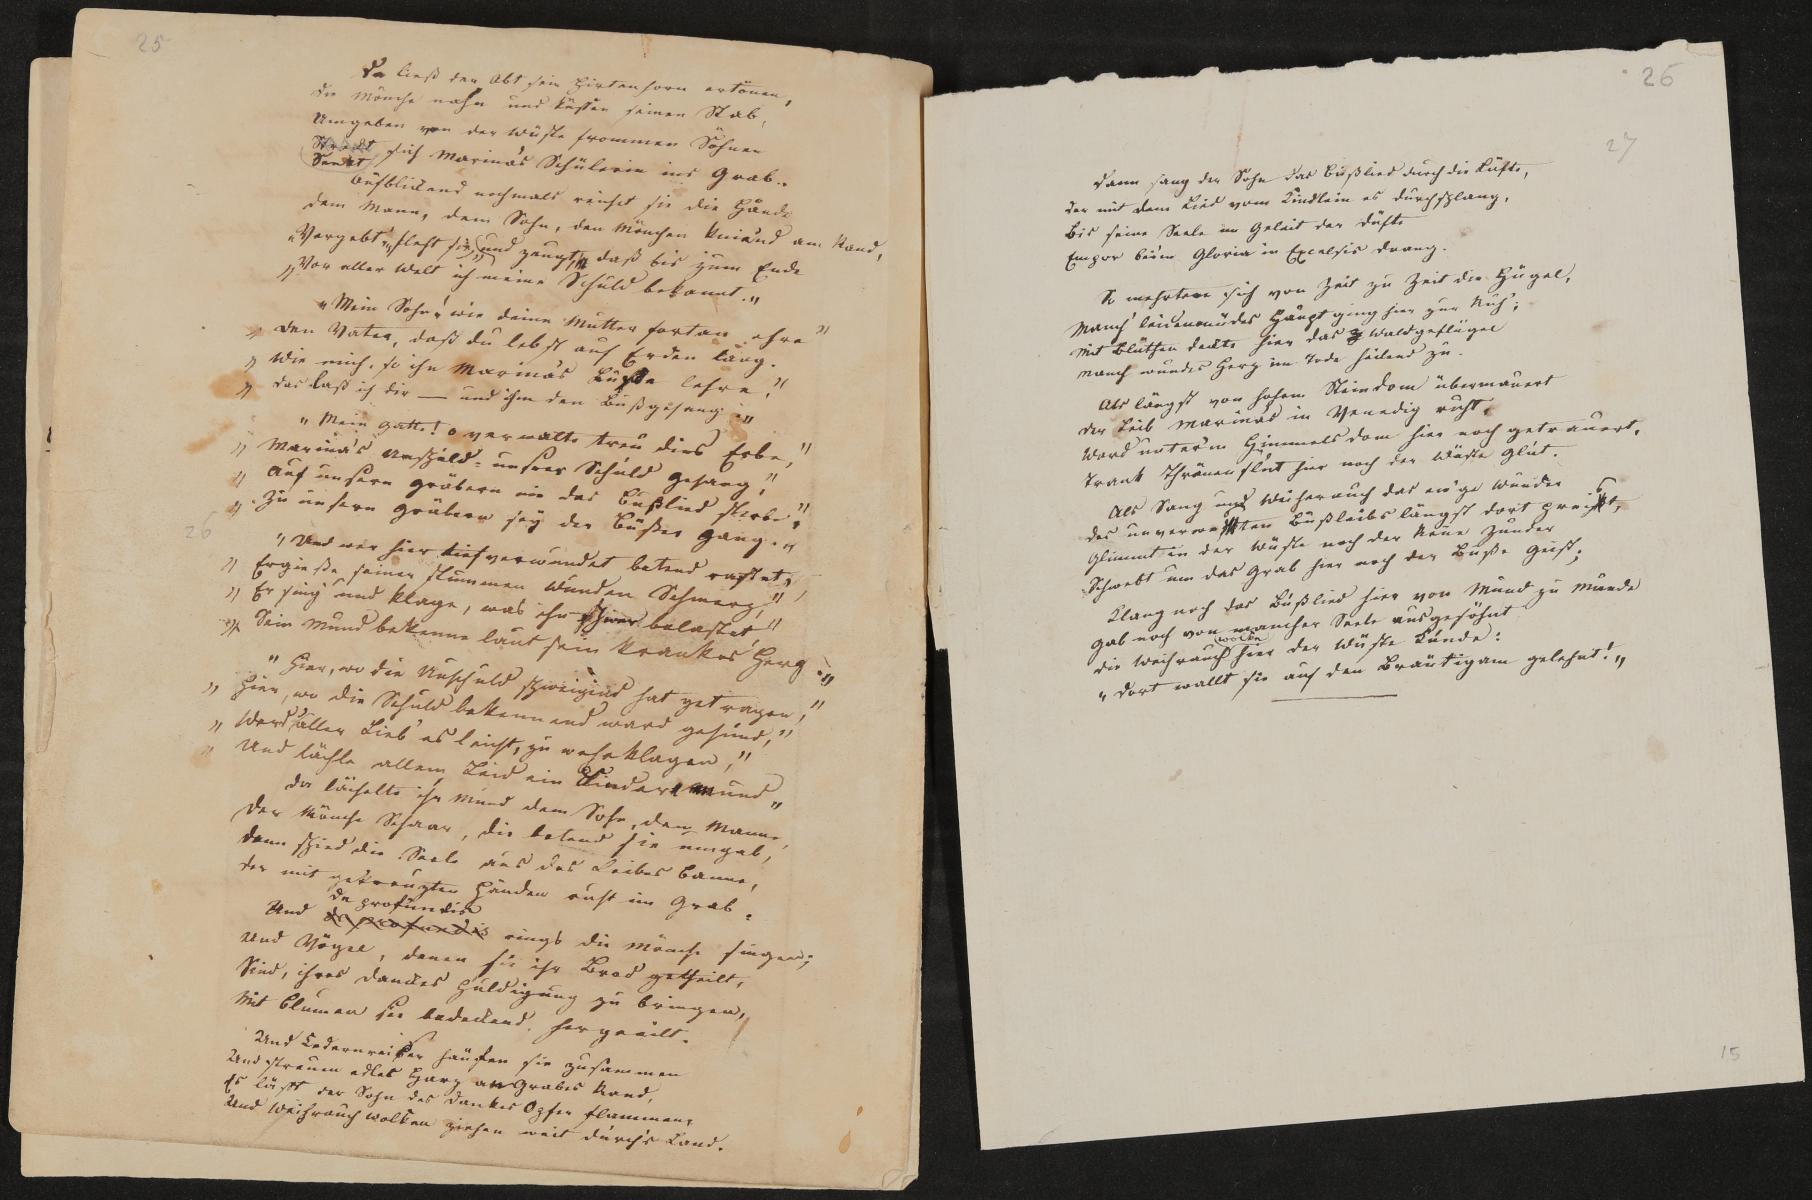 25
Da ließ der Abt sein Hirtenhorn ertönen,
Die Mönche nahn und küssen seinen Stab,
Umgeben von der Wüste frommen Söhnen
Senkt sich Marina's Schülerin ins Grab.
Aufblickend nochmals reichet sie die Hände
Dem Mann, dem Sohn, den Mönchen knie'nd am Rand,
„Vergebt", fleht sie, „und zeugt, daß bis zum Ende
„Vor aller Welt ich meine Schuld bekannt."
„Mein Sohn! wie deine Mutter fortan ehre"
„Den Vater, daß du lebst auf Erden lang.
„Wie mich, so ihn Marina's Buße lehre,"
„Das laß ich dir — und ihm den Bußgesang."
„Mein Gatte! o verwalte treu dies Erbe,"
„Marina's Unschuld- unsrer Schuld Gesang,"
„Auf unsern Gräbern nie das Bußlied sterbe,"
„Zu unsern Gräbern sey der Büßer Gang."
26
„Und wer hier tief verwundet betend rastet,"
„Ergieße seiner stummen Wunden Schmerz,"
„Er sing' und klage, was ihn schwer belastet,"
„Sein Mund bekenne laut sein krankes Herz."
„Hier, wo die Unschuld schweigend hat getragen,"
„Hier, wo die Schuld bekennend ward gesund,"
„Werd' aller Lieb' es leicht, zu wehklagen,"
„Und lächle allem Leid ein Kindermund"
Da lächelte ihr Mund dem Sohn, dem Manne,
Der Mönche Schaar, die betend sie umgab,
Dann schied die Seele aus des Leibes Banne,
Der mit gekreuzten Händen ruht im Grab.
de profundis
Und de profundis rings die Mönche singen;
Und Vögel, denen sie ihr Brod getheilt,
Sind, ihres Dankes Huldigung zu bringen,
Mit Blumen sie bedeckend, hergeeilt.
Und Cedernreiser häufen sie zusammen
Und streuen edles Harz an Grabes Rand,
Es läßt der Sohn des Dankes Opfer flammen,
Und Weihrauchwolken ziehen weit durch's Land.
26
27
Dann sang der Sohn das Bußlied durch die Lüfte,
Der mit dem Lied vom Kindlein es durchschlang,
Bis seine Seele im Geleit der Düfte
Empor beim Gloria in Excelsis drang.
So mehrten sich von Zeit zu Zeit die Hügel,
Manch' leidenmüdes Haupt ging hier zur Ruh';
Mit Blüthen deckte hier das Waldgeflügel
Manch wundes Herz im Tode heilend zu.
Als längst von hohem Steindom übermauert
Der Leib Marina's in Venedig ruht,
Ward unterm Himmelsdom hier noch getrauert,
Trank Thränenflut hier noch der Wüste Glut.
Als Sang und Weihrauch das ew'ge Wunder
Des unverwes'ten Bußleibs längst dort preist,
Glimmt in der Wüste noch der Reue Zunder
Schwebt um das Grab hier noch der Buße Geist;
Klang noch das Bußlied hier von Mund zu Munde
Gab noch von mancher Seele ausgesöhnt
Die Weihrauchwolke hier der Wüste Kunde:
„Dort wallt sie auf den Bräutigam gelehnt!"
15